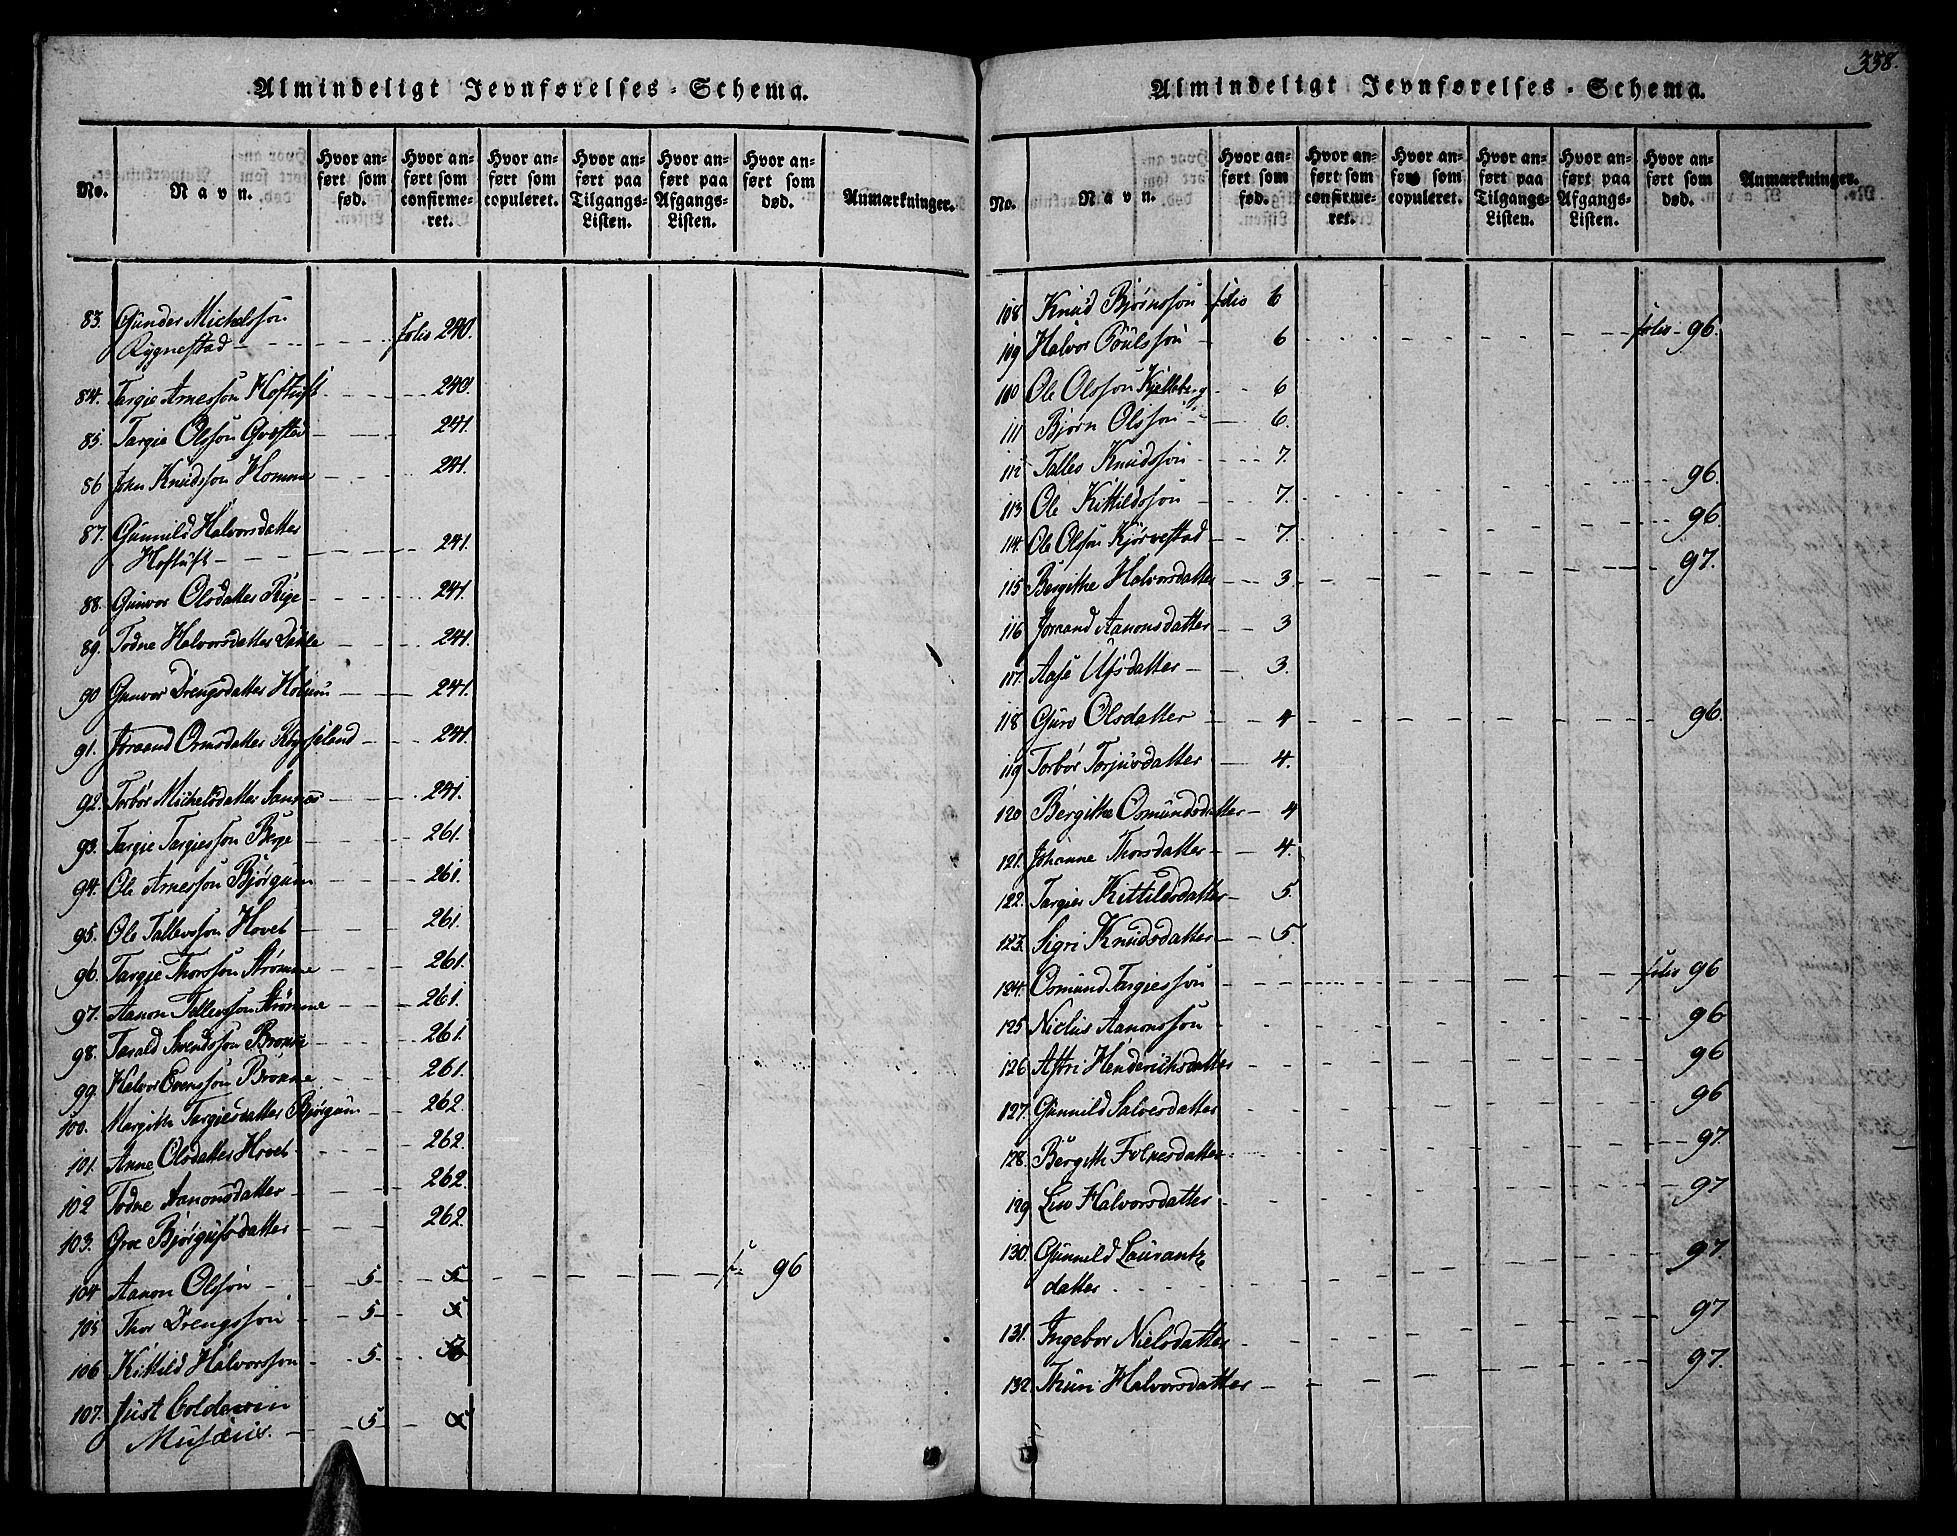 Almindeligt Jevnførelses-Schema.
No. Navn. Hvor anført som fød. Hvor anført som confirmeret. Hvor anført som copuleret. Hvor anført paa Tilgangs-Listen. Hvor anført paa Afgangs-Listen. Hvor anført som død. Anmærkninger.
83. Gunder Michelsson
Rygnestad folio 240.
84. Targie Arnesson Hoftuft 240.
85. Targie Olsson 241.
86 John Knudsson Homme 241.
87. Gunnild Halvorsdatter
Hoftuft 241.
88. Gunvor Olsdatter Rige 241.
89. Todne Halvorsdatter 241.
90 Gunvor Drengsdatter 241.
91. Joraand Ormsdatter 241.
92. Torbor Michelsdatter 241.
93. Targie Targiesson Berge 261.
94. Ole Arnesson Bjørgum 261.
95. Ole Tallevsson Hovet 261.
96. Targie Thorsson Strømme 261.
97. Aanon Tallevsson Strømme 261.
98. Tarald Svendsson 261.
99. Halvor Evensson 261.
100. Margithe Targiesdatter Bjørgum 262.
101. Anne Olsdatter Hovet 262.
102 Todne Aanonsdatter 262.
103. Groe Bjørgufsdatter 262.
104 Aanon Olsson 5 5 f 96
105 Thor Drengsson 5 5
106 Kittild Halvorsson 5
107. Just Coldevin
Musæus. 5 5
338.
Almindeligt Jevnførelses-Schema.
No. Navn. Hvor anført som fød. Hvor anført som confirmeret. Hvor anført som copuleret. Hvor anført paa Tilgangs-Listen. Hvor anført paa Afgangs-Listen. Hvor anført som død. Anmærkninger.
108 Knud Bjørnsson folio 6
109 Halvor Poulsson 6 folio 96.
110 Ole Olsson Kjelleberg 6
111 Bjørn Olsson 6.
112 Tallev Knudsson 7.
113 Ole Kittildsson 7. 96.
114. Ole Olsson 7 96
115 Bergithe Halvorsdatter 3 97.
116 Joraand Aanonsdatter 3
117. Aase Ufsdatter 3.
118 Guro Olsdatter 4 96.
119 Torbor Torjusdatter 4.
120 Bergithe Osmundsdatter 4
121. Johanne Thorsdatter 4.
122. Targier Kittilsdatter 5.
123. Sigri Knudsdatter 5.
124. Osmund Targiesson folio 96
125 Niclus Aanonsson 96
126 Astri Henderichsdatter 96
127. Gunnild Salvesdatter 96
128. Bergithe Folkesdatter 97
129 Liv Halvorsdatter 97
130. Gunnild Laurantz
datter. 97
131. Ingebor Nielsdatter 97
132 Thuri Halvorsdatter 97.